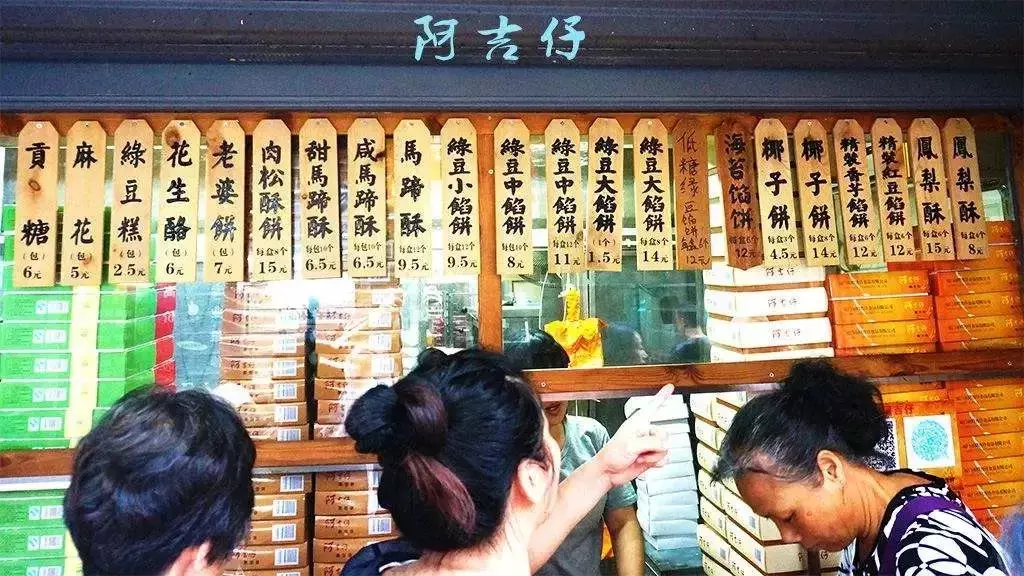 阿吉仔
貢糖(包)6元
麻花(包)5元
綠豆糕(包)2.5元
花生酪(包)6元
老婆餅(包)7元
肉松酥餅每盒8个15元
甜馬蹄酥每包10个6.5元
咸馬蹄酥每包10个6.5元
馬蹄酥每盒12个9.5元
綠豆小餡餅每盒12个9.5元
綠豆中餡餅8元
綠豆中餡餅每盒12个11元
綠豆大餡餅(1个)1.5元
綠豆大餡餅14元
低糖緑豆餡餅12元
海苔餡餅12元
椰子餅4.5元
椰子餅14元
精裝香芋餅12元
精裝紅豆餡餅12元
鳳梨酥15元
鳳梨酥8元